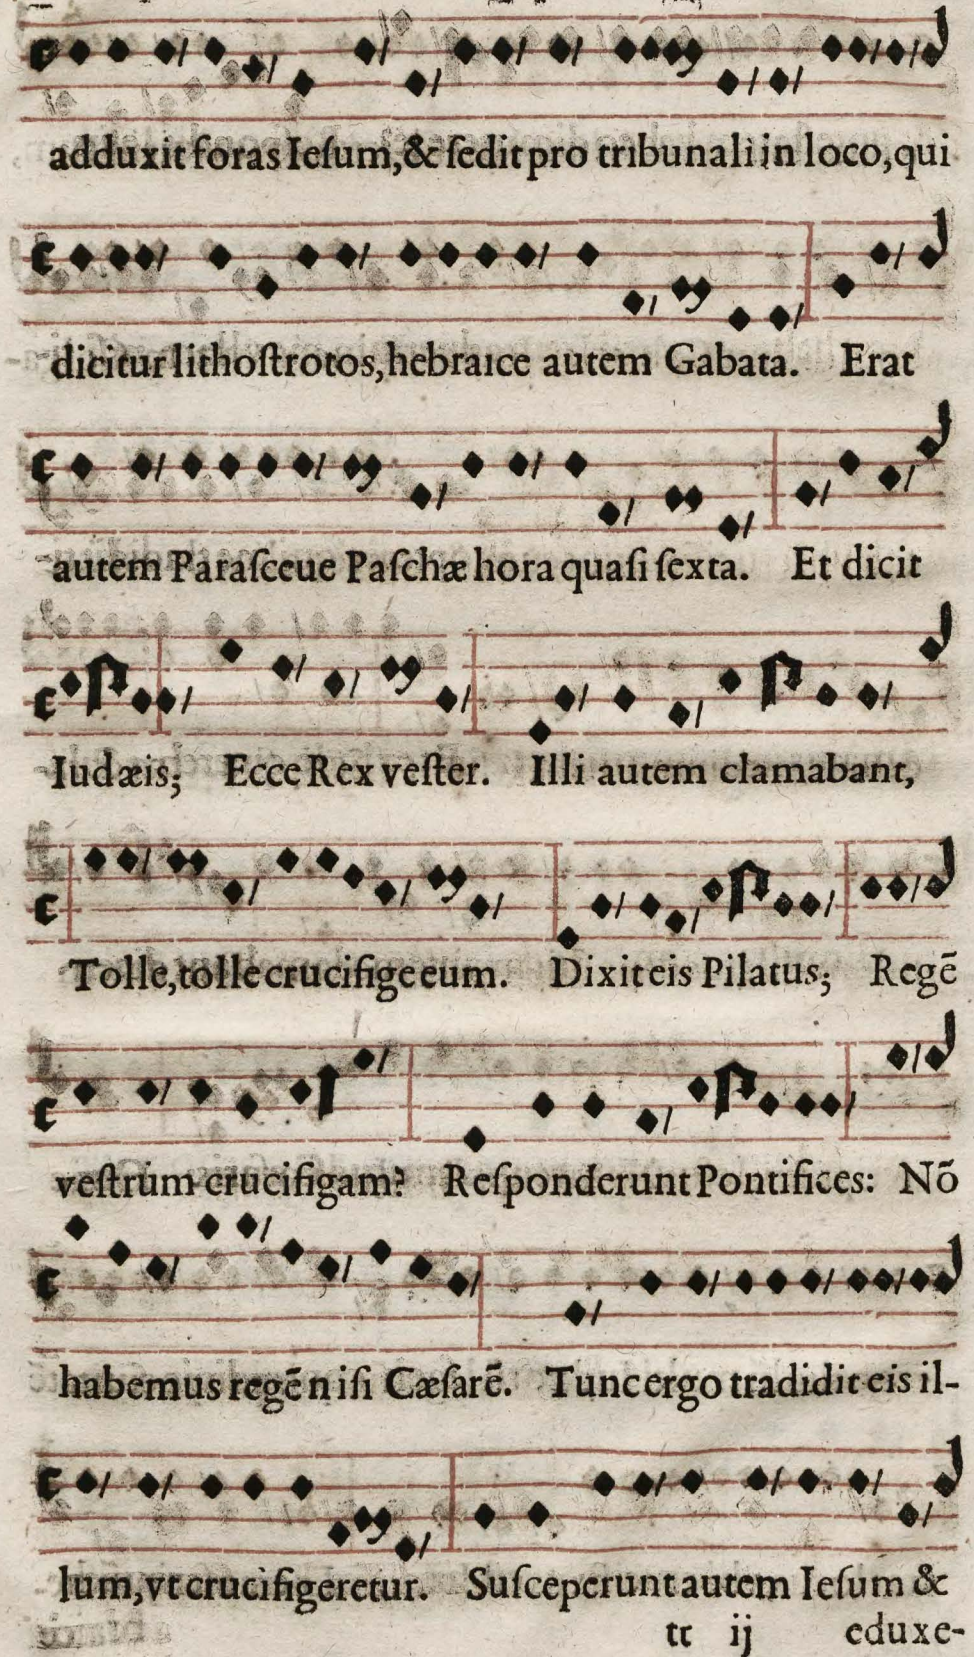 adduxit foras Ieſum, & ſedit pro tribunali in loco, qui
dicitur lithoſtrotos, hebraice autem Gabata. Erat
autem Paraſceue Paſchæ hora quaſi ſexta. Et dicit
Iudæis; Ecce Rex veſter. Illi autem clamabant,
Tolle, tolle crucifige eum. Dixit eis Pilatus; Regē
veſtrum crucifigam? Reſponderunt Pontifices: Nō
habemus regē niſi Cæſarē. Tunc ergo tradidit eis il-
lum, vt crucifigeretur. Suſceperunt autem Ieſum &
tt ij eduxe-